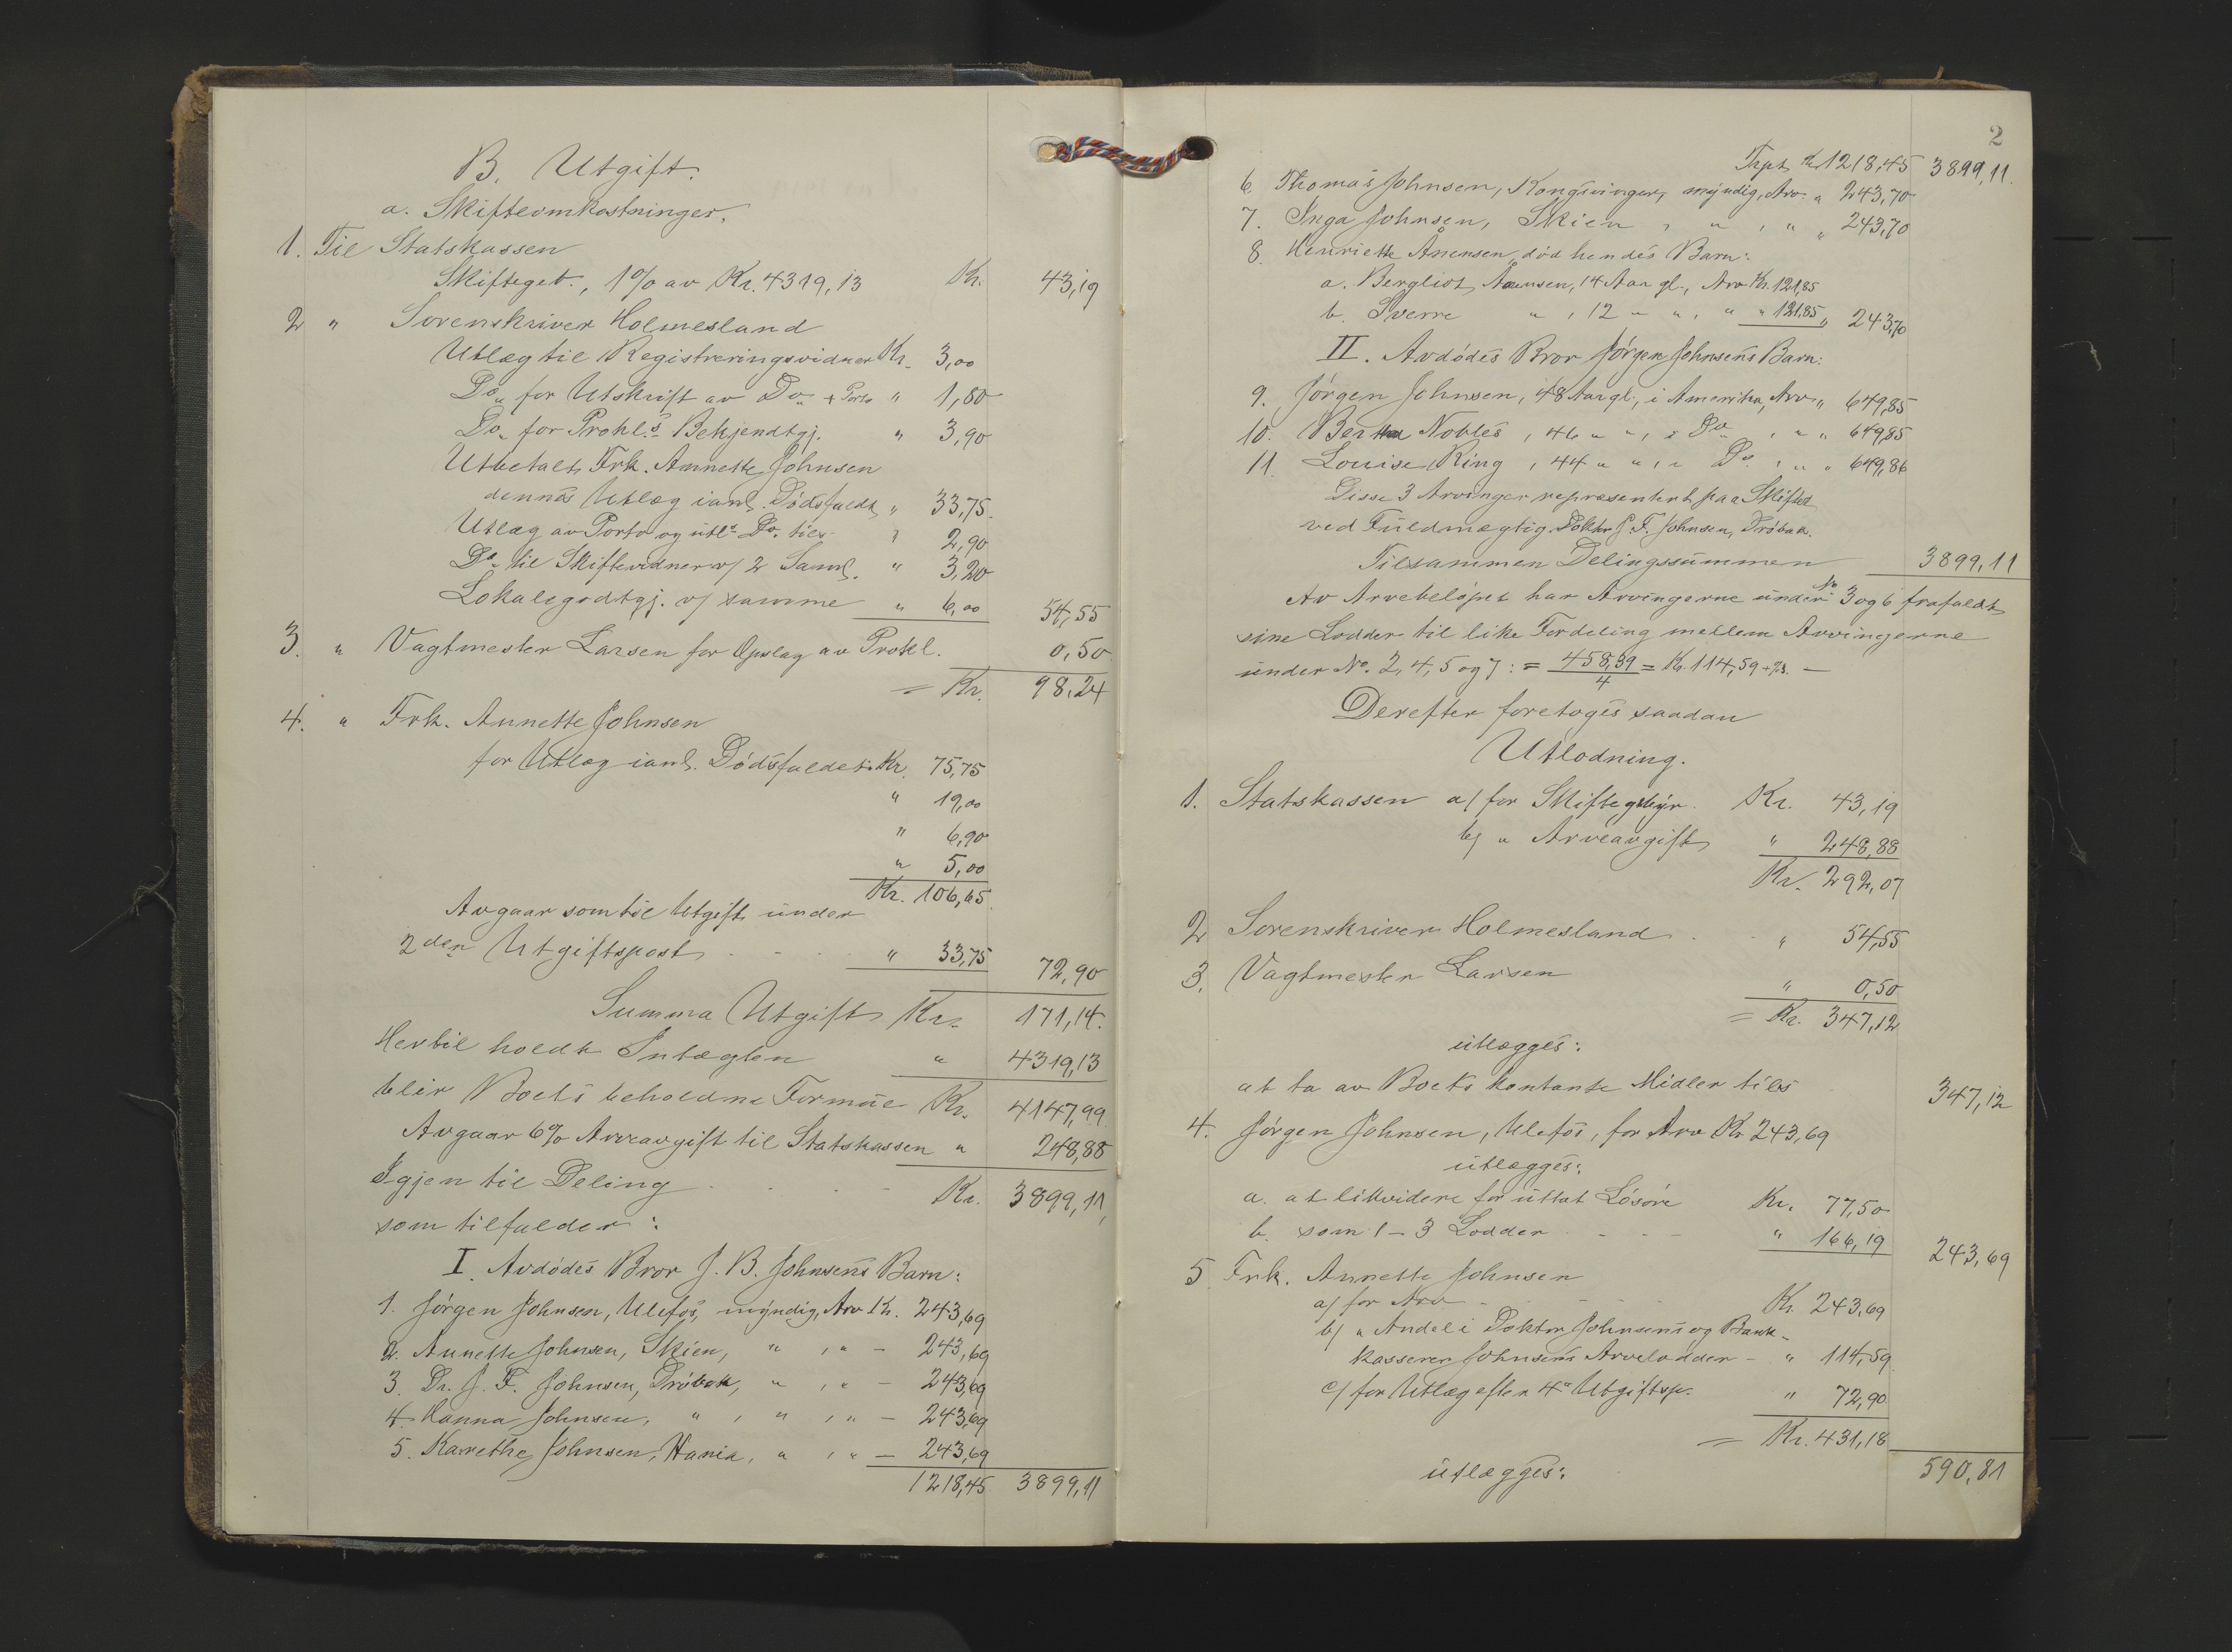 B. Utgift.
a. Skifteomkostninger.
1. Til Statskassen
Skifteget., 1% av Kr. 4319,13 Kr. 43,19
2 " Sorenskriver Holmesland
Utlæg til Registreringsvidner Kr. 3,00
Do. for Utskrift av Do. + Porto " 1,80
Do. for Prokl.s Bekjendtgj. " 3,90
Utbetalt Frk. Annette Johnsen
dennes Utlæg ianl. Dødsfaldt " 33,75
Utlæg av Porto og utl. Do. tils. " 2,90
Do. til Skiftevidner v/ 2 Saml. " 3,20
Lokalegodtgj. v/ samme " 6,00 54,55
3. " Vagtmester Larsen for Opslag av Prokl. 0,50
= Kr. 98,24
4. " Frk. Annette Johnsen
for Utlæg ianl. Dødsfaldet: Kr. 75,75
" 19,00
" 6,90
" 5,00
Kr. 106,65
Avgaar som til Utgift under
2den Utgiftspost " 33,75 72,90
Summa Utgift Kr. 171,14.
Hertil holdt Indtægten " 4319,13
blir Boets beholdne Formue Kr. 4147,99
Avgaar 6% Arveavgift til Statskassen " 248,88
Igjen til Deling Kr. 3899,11
som tilfalder:
I. Avdødes Bror J. B. Johnsens Barn:
1. Jørgen Johnsen, Ulefos, myndig, Arv Kr. 243,69
2. Annette Johnsen, Skien, " , " – 243,69
3. Dr. J. F. Johnsen, Drøbak, " , " – 243,69
4. Hanna Johnsen, " , " , " – 243,69
5. Karethe Johnsen, " , " – 243,69
1218,45 3899,11
2
Trpt. Kr. 1218,45 3899,11.
6. Thomas Johnsen, Kongsvinger, myndig, Arv " 243,70
7. Inga Johnsen, Skien , " , " " 243,70
8. Henriette Anensen, død hendes Barn:
a. Bergliot Aanensen, 14 Aar gl., Arv Kr. 121,85
b. Sverre " , 12 " " , " " 121,85 " 243,70
II. Avdødes Bror Jørgen Johnsens Barn:
9. Jørgen Johnsen, 48 Aar gl., i Amerika, Arv " 649,85
10. Bertha Nobles , 46 " " , i Do , " " 649,85
11. Louise Ring , 44 " " , " Do. , " " 649,86
Disse 3 Arvinger repræsentert paa Skiftet
ved Fuldmægtig Doktor J. F. Johnsen, Drøbak.
Tilsammen Delingssummen 3899,11
Av Arvebeløpet har Arvingerne under No 3 og 6 frafaldt
sine Lodder til like Fordeling mellem Arvingerne
under No. 2, 4, 5 og 7: = 458,39 / 4 = Kr. 114,59 + 
Derefter foretoges saadan
Utlodning.
1. Statskassen a/ for Skiftegebyr. Kr. 43,19
b/ " Arveavgift " 248,88
Kr. 292,07
2 Sorenskriver Holmesland " 54,55
3. Vagtmester Larsen " 0,50
= Kr. 347,12
utlægges:
at ta av Boets kontante Midler tils 347,12
4. Jørgen Johnsen, Ulefos, for Arv Kr 243,69
utlægges:
a. at likvidere for uttat Løsøre Kr. 77,50
b. som 1 – 3 Lodder " 166,19 243,69
5. Frk. Annette Johnsen
a/ for Arv Kr. 243,69
b/ " Andel i Doktor Johnsens og Bank-
kasserer Johnsens Arvelodder – " 114,59
c/ for Utlæg efter 4de Utgiftsp. " 72,90
= Kr. 431,18
utlægges: 590,81